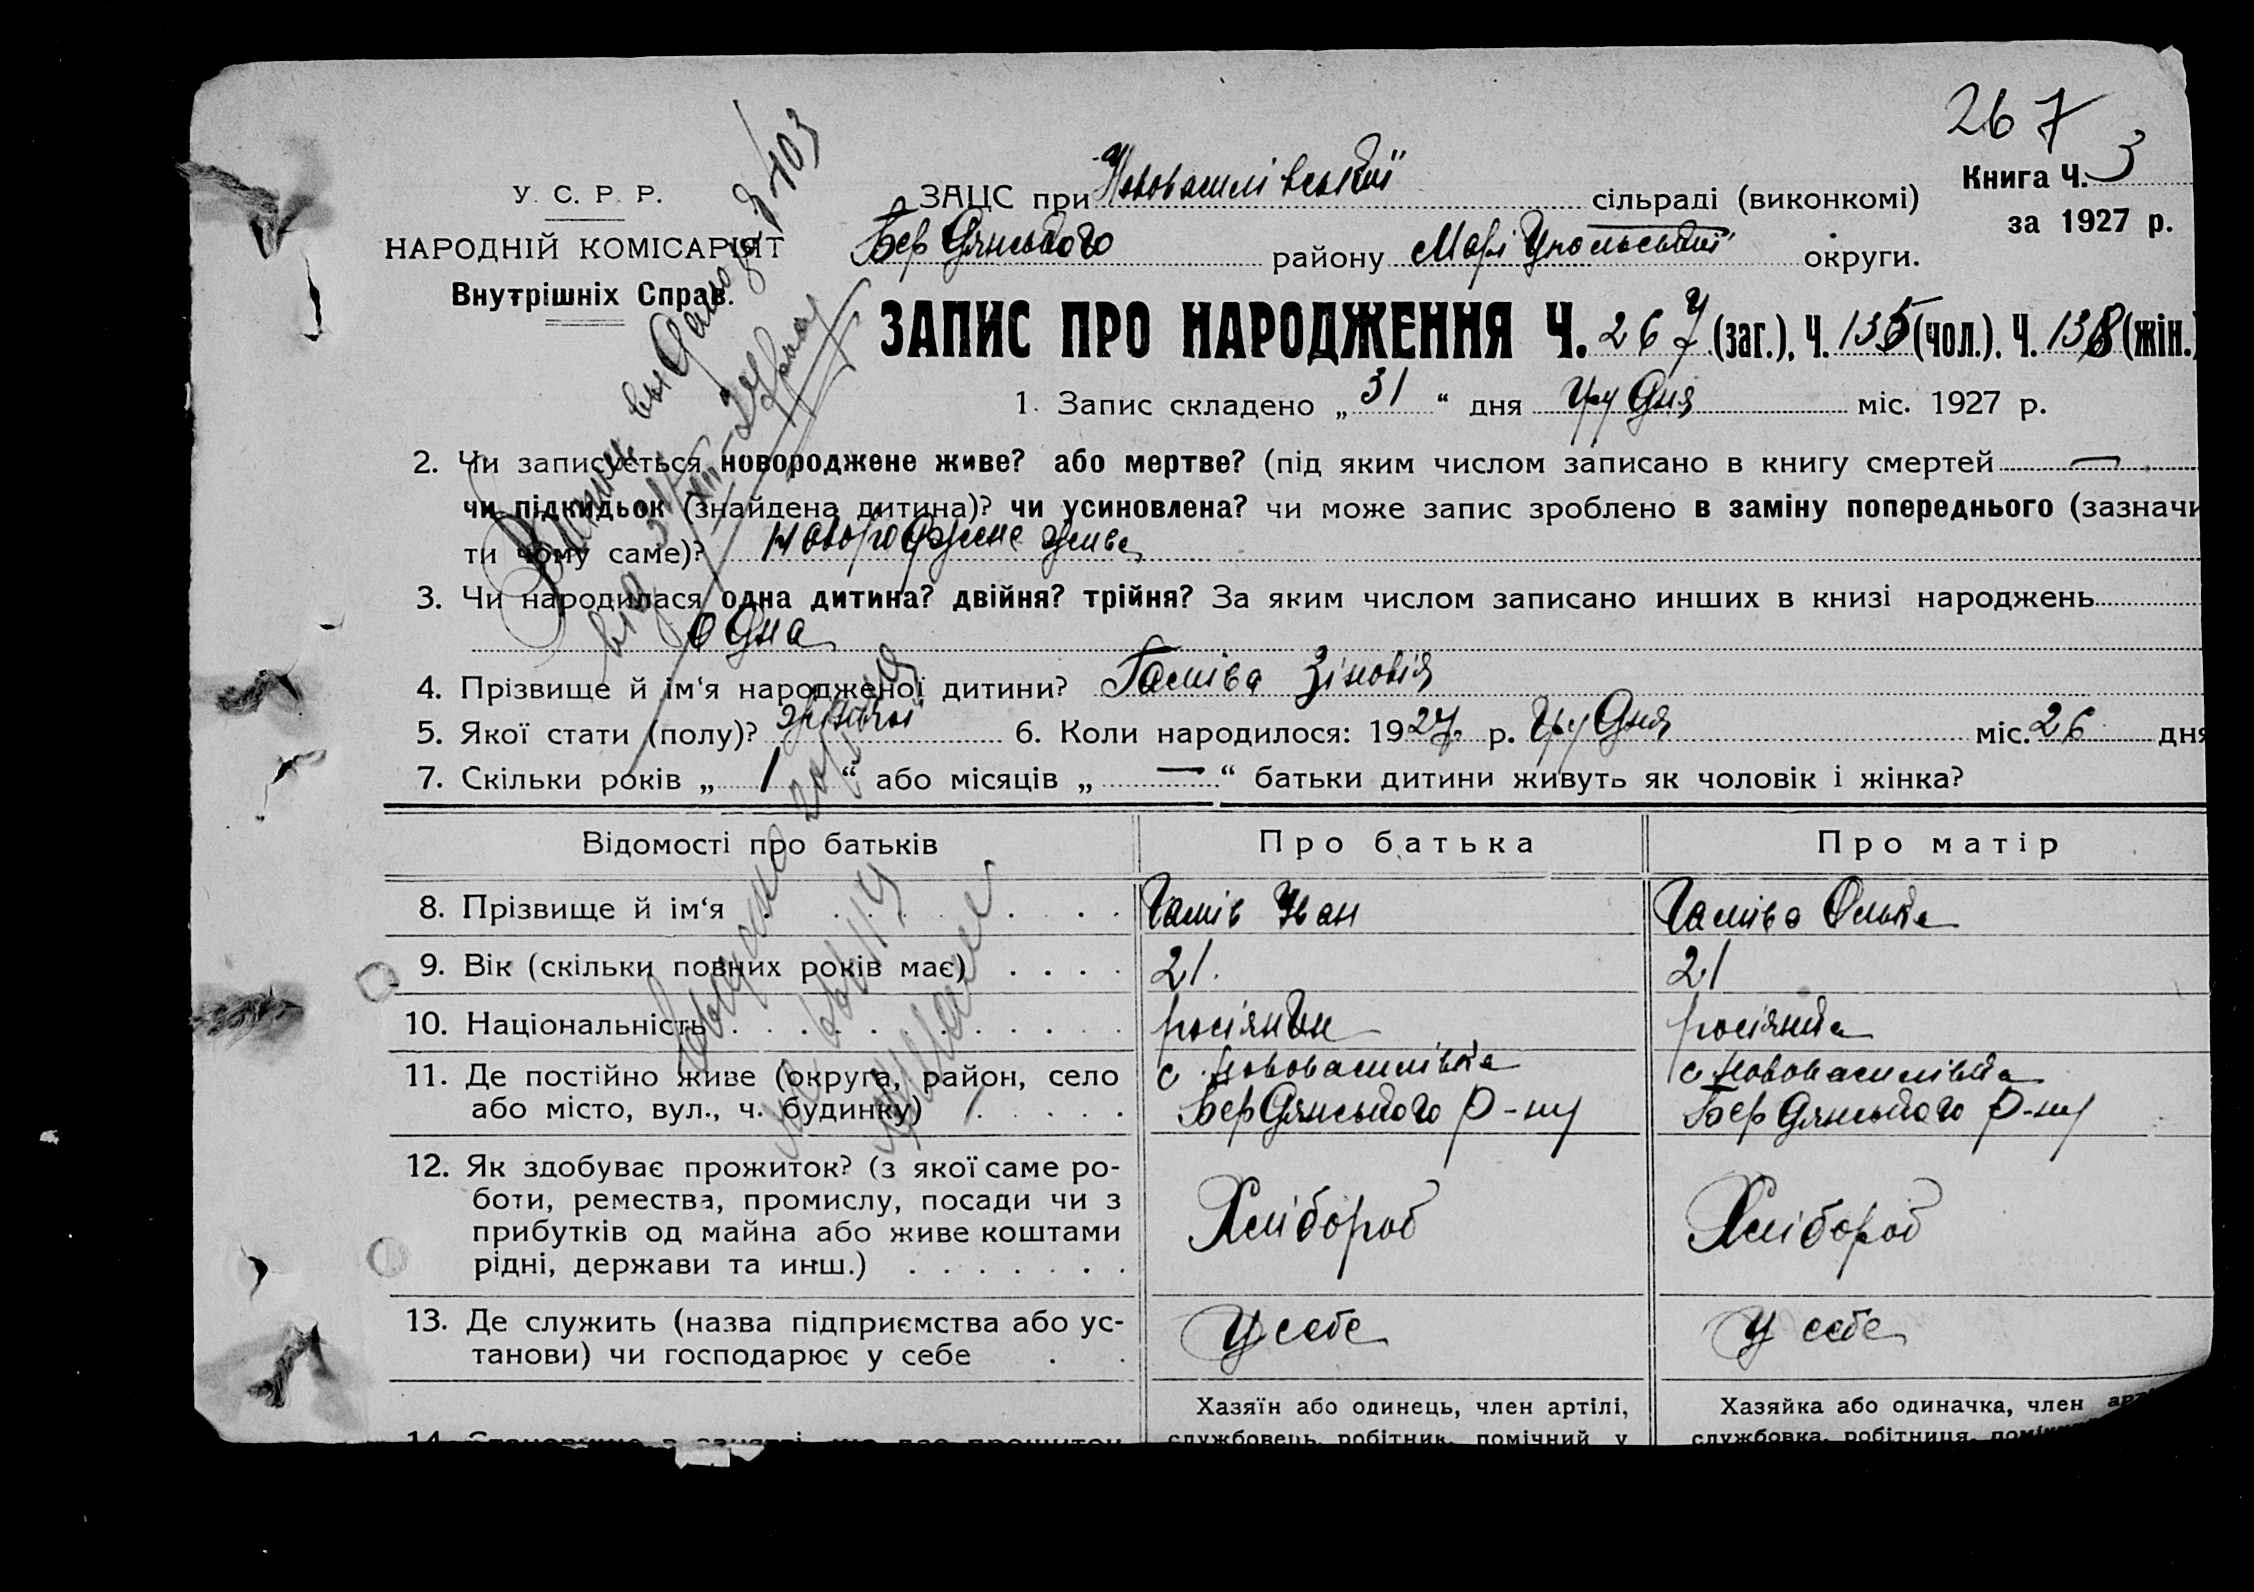 267
У. С. Р. Р.
НАРОДНІЙ КОМІСАРІЯТ
Внутрішніх Справ.
ЗАЦС при Нововасилівській сільраді (виконкомі)
Бердянського району Маріупольської округи.
Книга Ч. 3
за 1927 р.
ЗАПИС ПРО НАРОДЖЕННЯ Ч. 267 (заг.), Ч. 135 (чол.), Ч. 138 (жін.)
1. Запис складено „31“ дня Грудня міс. 1927 р.
2. Чи записується новороджене живе? або мертве? (під яким числом записано в книгу смертей —
чи підкидьок (знайдена дитина)? чи усиновлена? чи може запис зроблено в заміну попереднього (зазначи
ти чому саме)? новороджене живе
3. Чи народилася одна дитина? двійня? трійня? За яким числом записано инших в книзі народжень
одна
4. Прізвище й ім‘я народженої дитини? Зіновія
5. Якої стати (полу)? жіночої 6. Коли народилося: 1927 р. Грудня міс. 26 дня
7. Скільки років „1“ або місяців „—“ батьки дитини живуть як чоловік і жінка?
Відомості про батьків Про батька Про матір
8. Прізвище й ім‘я Іван
9. Вік (скільки повних років має) 21. 21
10. Національність росіянин росіянка
11. Де постійно живе (округа, район, село с. Нововасилівка с. Нововасилівка
або місто, вул., ч. будинку) Бердянського р-ну Бердянського р-ну
12. Як здобуває прожиток? (з якої саме ро-
боти, ремества, промислу, посади чи з Хлібороб Хлібороб
прибутків од майна або живе коштами
рідні, держави та инш.)
13. Де служить (назва підприємства або ус- У себе У себе
танови) чи господарює у себе
Хазяїн або одинець, член артілі, Хазяйка або одиначка, член
службовець, робітник, помічний у службовка, робітниця,